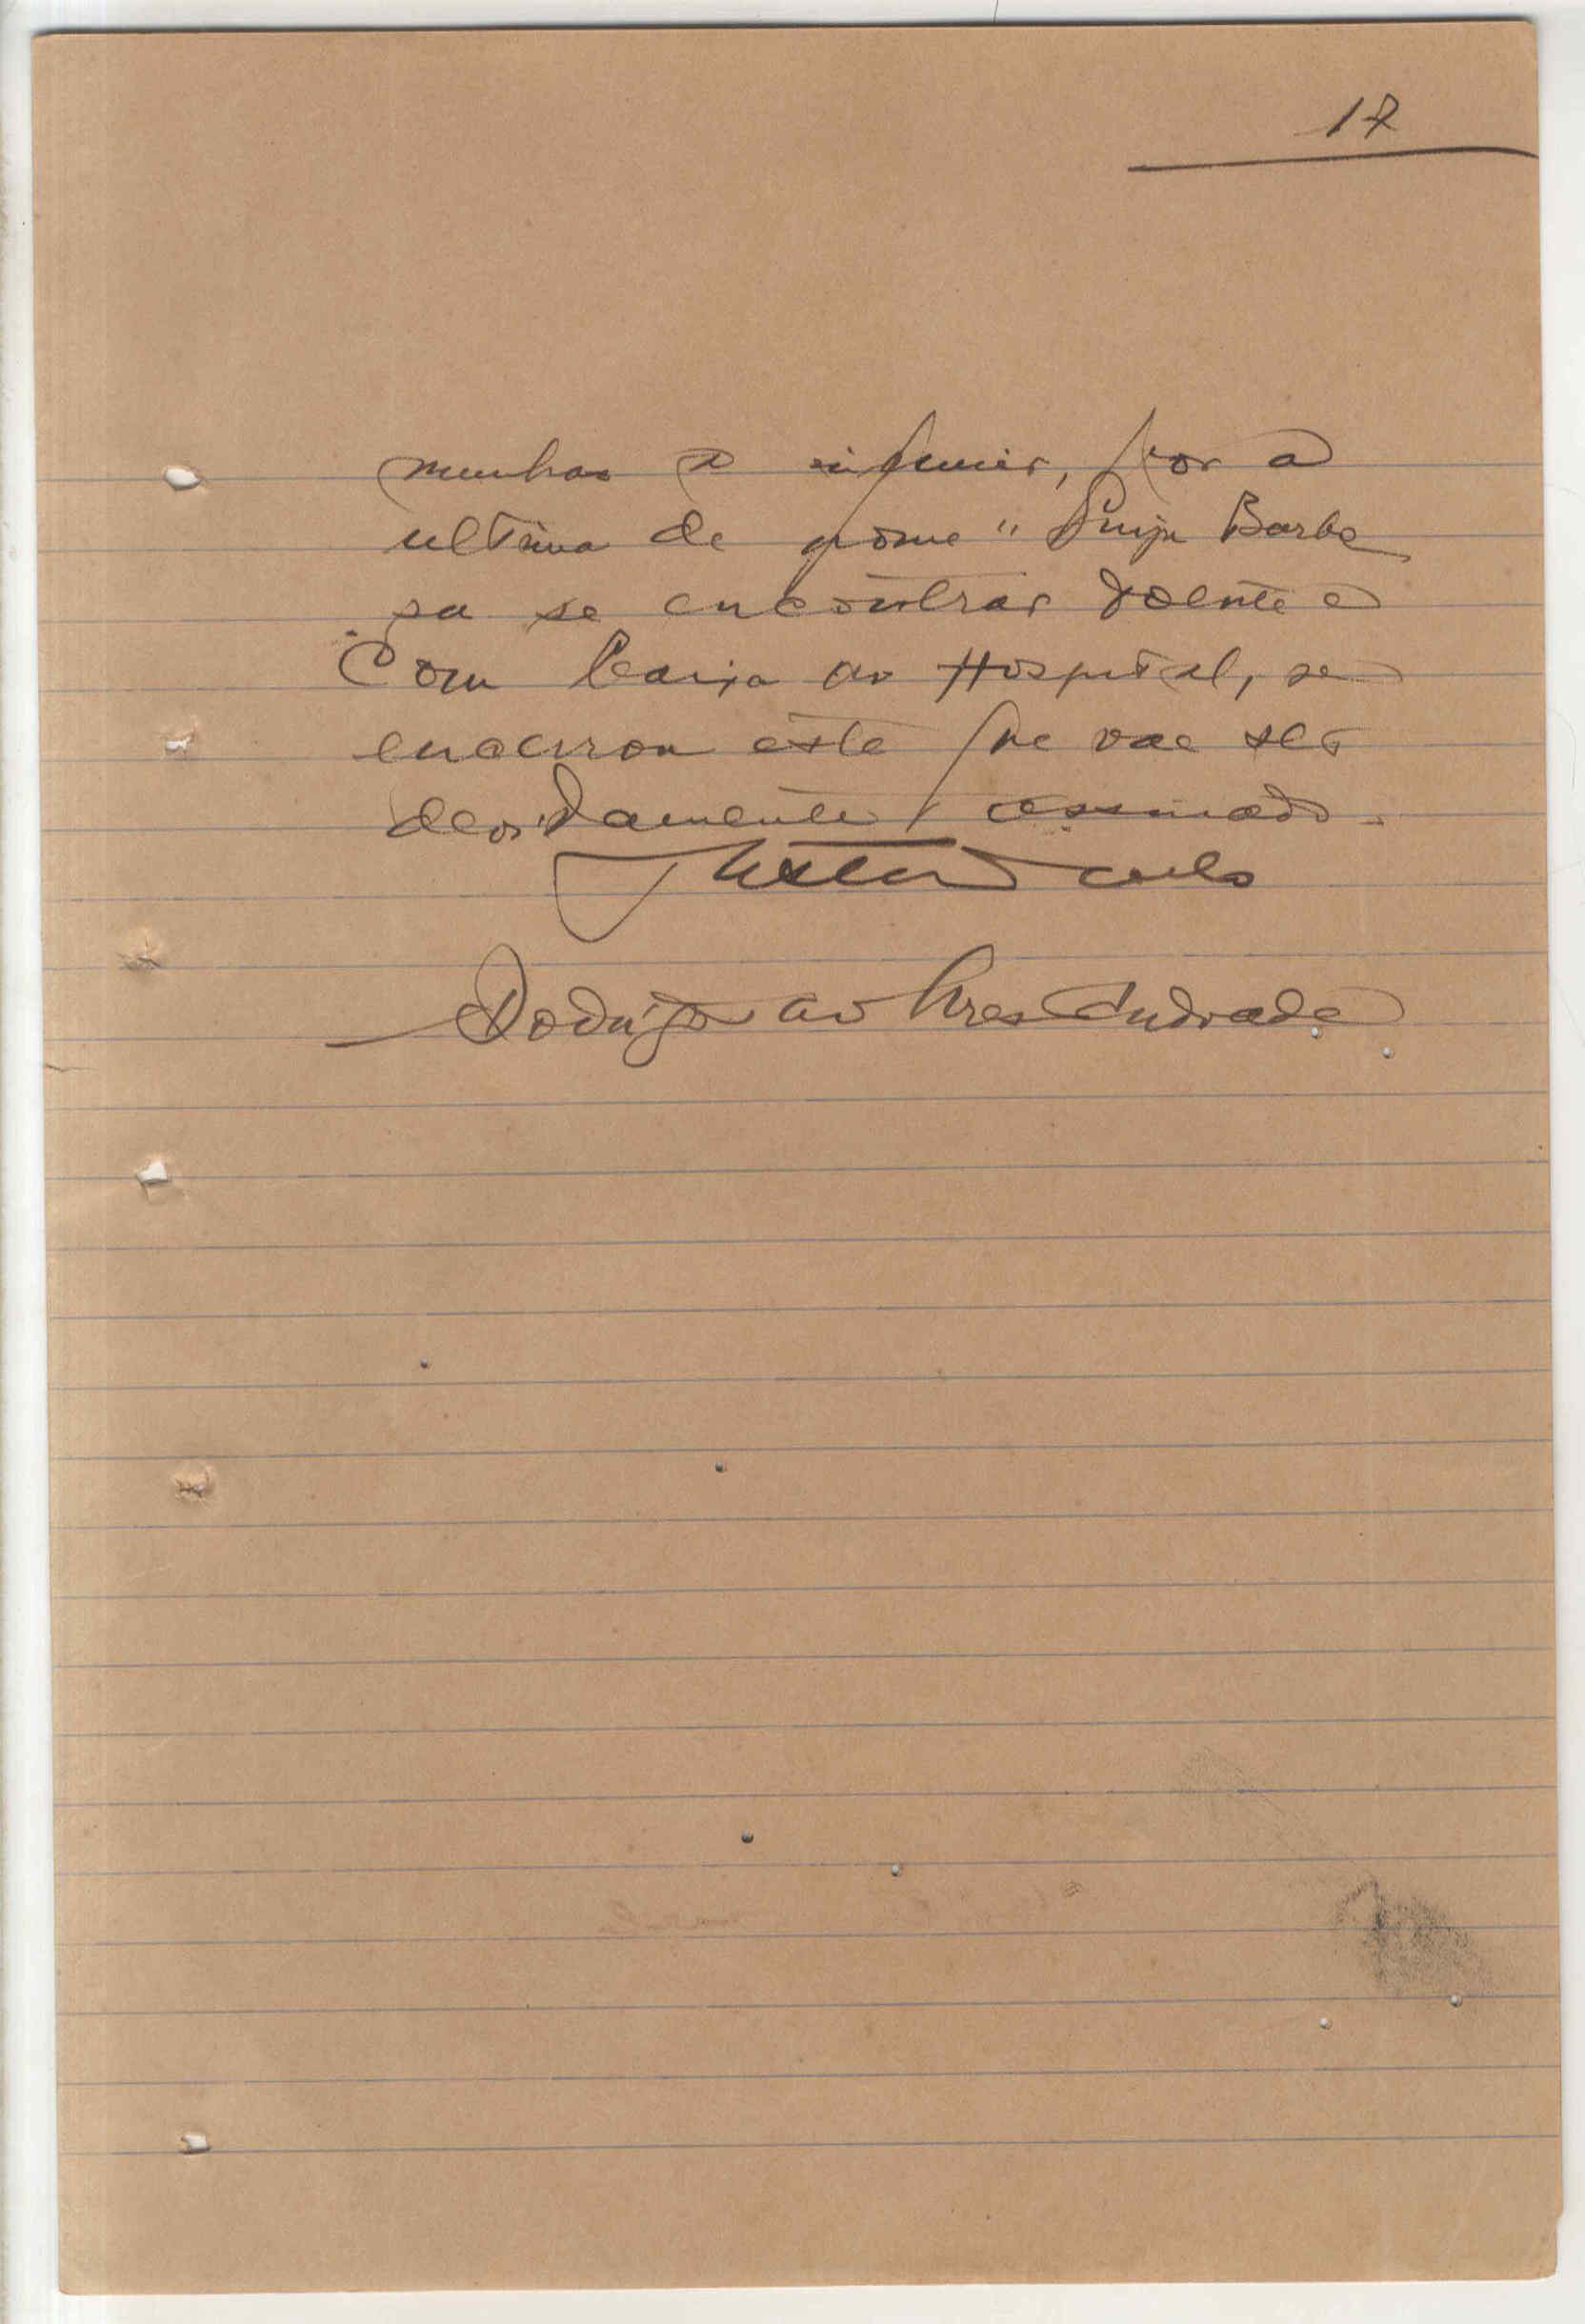 17
munhas a inquirir, por a
ultima de nome " Barbo
sa se encontrar doente e
com baixa ao Hospital, se
encerrou este que vae ser
devidamente assinado.
Rodrigo Alvares Andrade